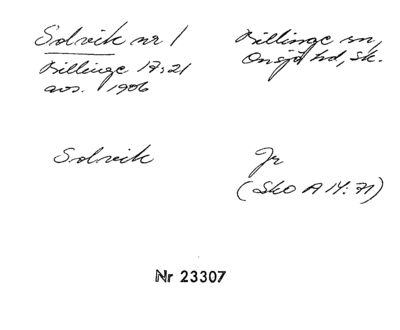 Solvik nr 1
Billinge sn,
Onsjö hd, Sk.
Billinge 17:21
avs. 1906
Solvik
Jr
(SkO A 14:71)
Nr 23307